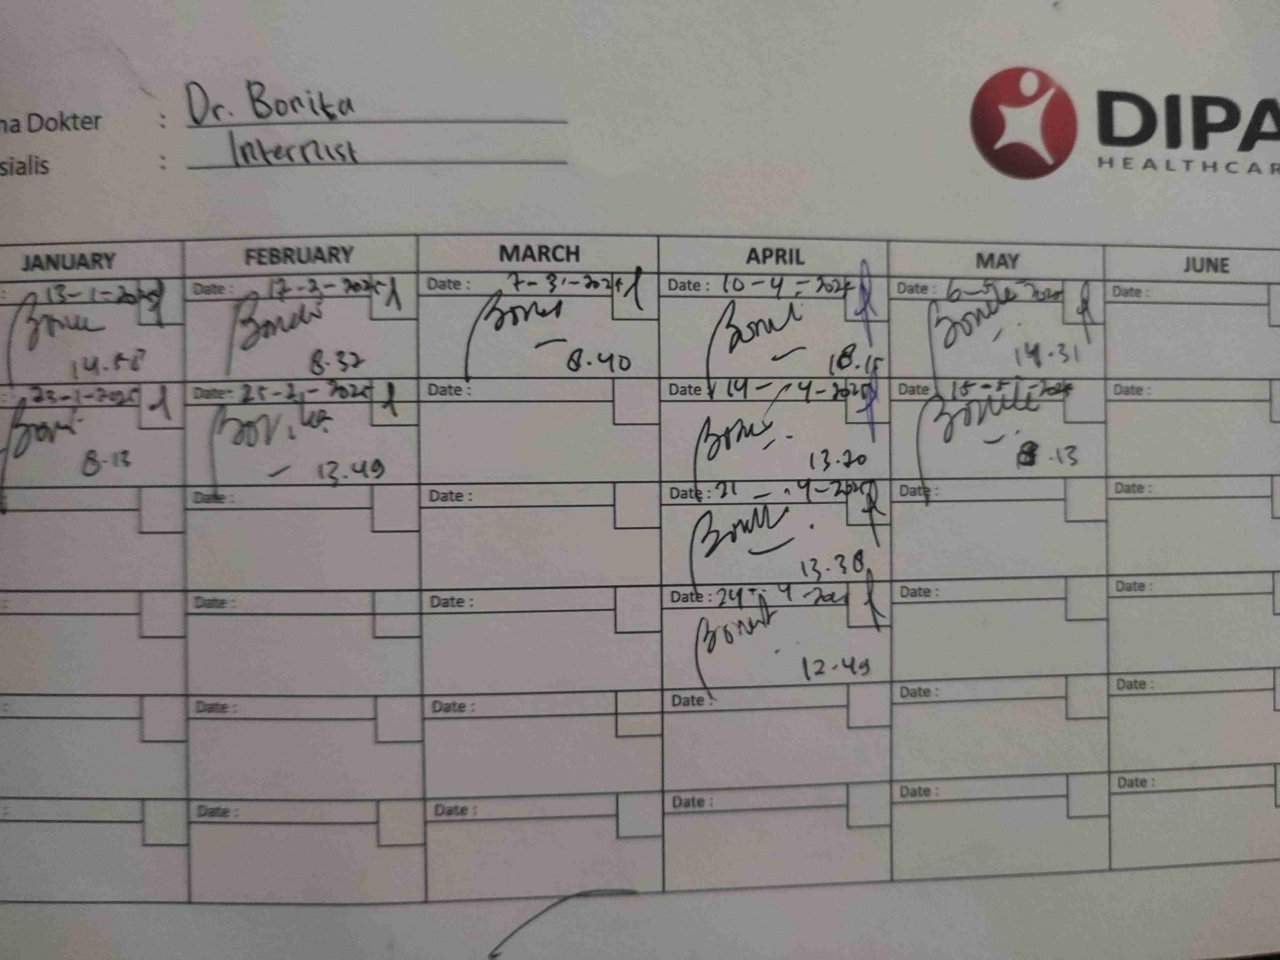 na Dokter : Dr. Bonita
sialis : Internist
DIPA
HEALTHCAR
JANUARY FEBRUARY MARCH APRIL MAY JUNE
: 13-1-2025 Date : 17-2-2025 Date : 7-3-2025 Date : 10-4-2025 Date : 6-5-2025 Date :
14.58 8.32 8.40 18.15 14.31
: 23-1-2025 Date : 25-2-2025 Date : Date : 14-4-2025 Date : 15-5-2025 Date :
Bonita
8.13 13.49 13.20 8.13
: Date : Date : Date : 21-4-2025 Date : Date :
13.38
: Date : Date : Date : 24-4-2025 Date : Date :
12.49
: Date : Date : Date : Date : Date :
: Date : Date : Date : Date : Date :